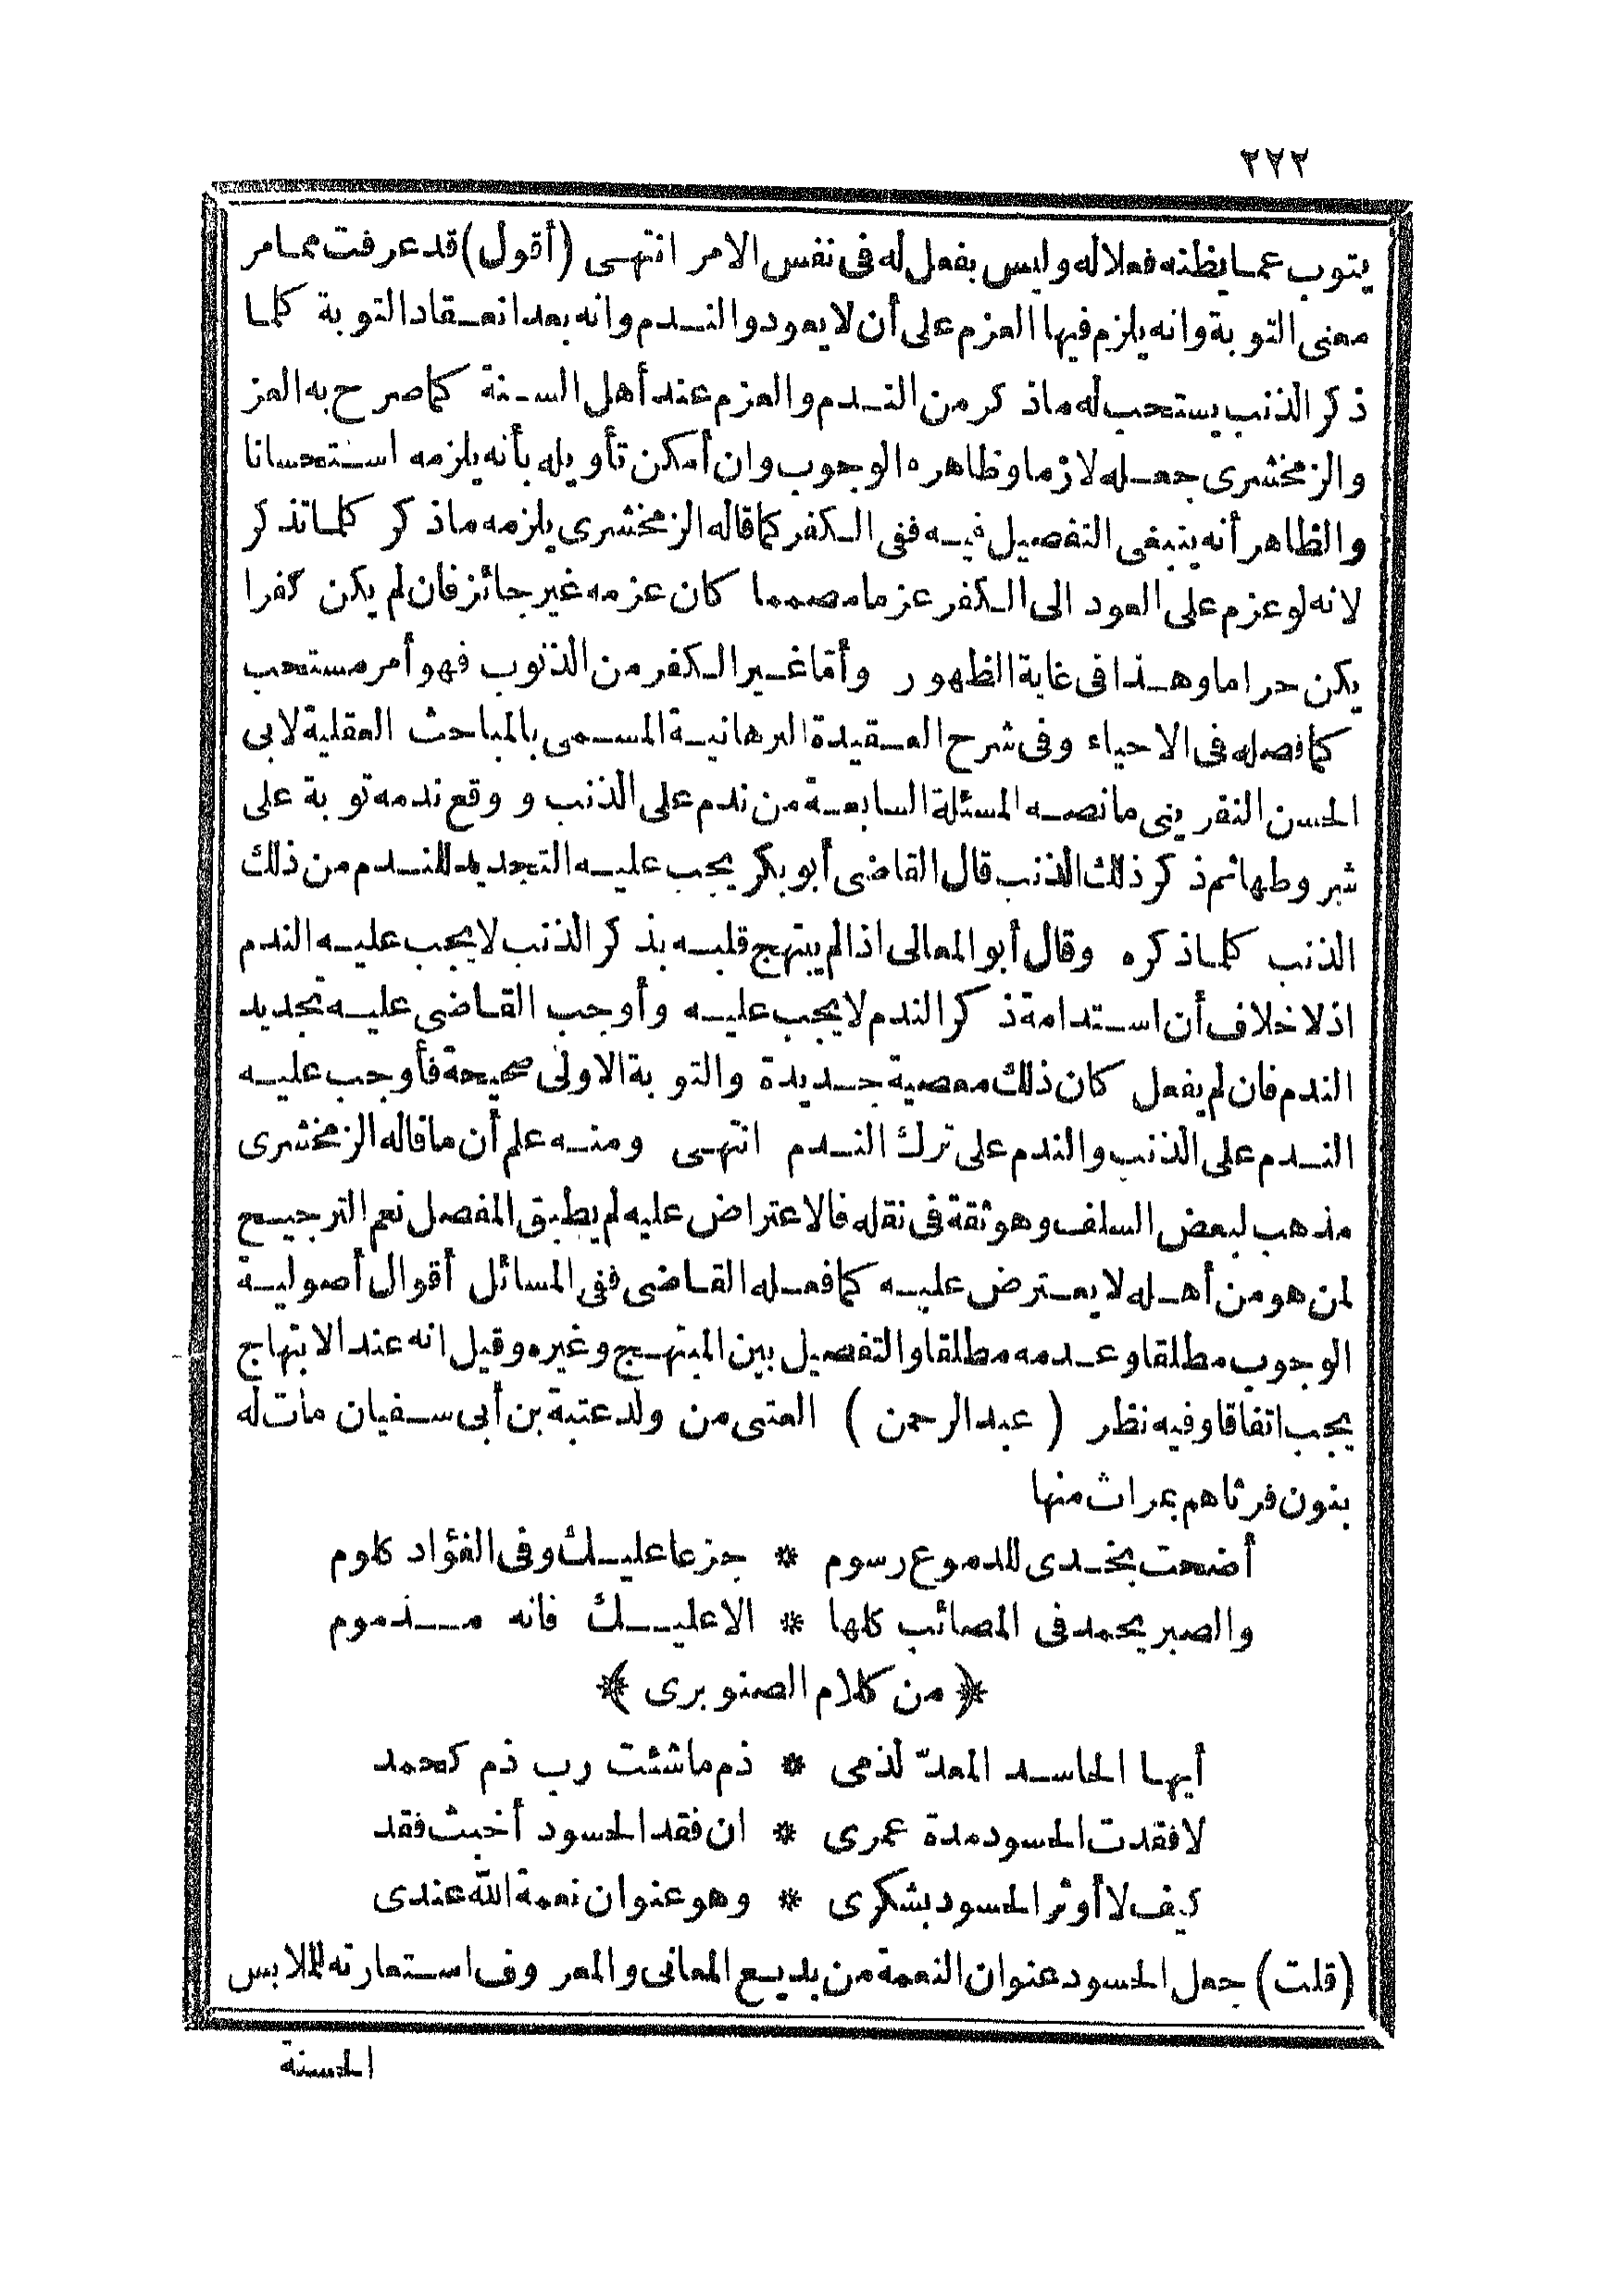 ٢٢٢
يتوب عما يظنه فعلا له وليس بفعل له فى نفس الامر انتهى (أقول) قد عرفت مما مر
معنى التوبة وانه يلزم فيها العزم على أن لا يعود والندم وانه بعد انعقاد التوبة كلما
ذكر الذنب يستحب له ما ذكر من الندم والعزم عند أهل السنة كما صرح به العز
والزمخشرى جعله لازما وظاهره الوجوب وان أمكن تأويله بأنه يلزمه استحسانا
والظاهر أنه ينبغى التفصيل فيه ففى الكفر كما قاله الزمخشرى يلزمه ما ذكر كلما تذكر
لانه لو عزم على العود الى الكفر عزما مصمما كان عزمه غير جائز فان لم يكن كفرا
يكن حراما وهذا فى غاية الظهور وأما غير الكفر من الذنوب فهو أمر مستحب
كما فصله فى الاحياء وفى شرح العقيدة البرهانية المسمى بالمباحث العقلية لابى
الحسن النفرينى ما نصه المسئلة السابعة من ندم على الذنب ووقع ندمه توبة على
شروطها ثم ذكر ذلك الذنب قال القاضى أبو بكر يجب عليه التجديد للندم من ذلك
الذنب كلما ذكره وقال أبو المعالى اذا لم يبتهج قلبه بذكر الذنب لا يجب عليه الندم
اذ لا خلاف أن استدامة ذكر الندم لا يجب عليه وأوجب القاضى عليه تجديد
الندم فان لم يفعل كان ذلك معصية جديدة والتوبة الاولى صحيحة فأوجب عليه
الندم على الذنب والندم على ترك الندم انتهى ومنه علم أن ما قاله الزمخشرى
مذهب لبعض السلف وهو ثقة فى نقله فالاعتراض عليه لم يطبق المفصل نعم الترجيح
لمن هو من أهله لا يعترض عليه كما فعله القاضى ففى المسائل أقوال أصولية
الوجوب مطلقا وعدمه مطلقا والتفصيل بين المبتهج وغيره وقيل انه عند الابتهاج
يجب اتفاقا وفيه نظر (عبد الرحمن) العتبى من ولد عتبة بن أبى سفيان مات له
بنون فرثاهم بمراث منها
أضحت بخدى للدموع رسوم * جزعا عليك وفى الفؤاد كلوم
والصبر يحمد فى المصائب كلها * الا عليك فانه مذموم
﴿من كلام الصنوبرى﴾
أيها الحاسد المعدّ لذمى * ذم ما شئت رب ذم كحمد
لا فقدت الحسود مدة عمرى * ان فقد الحسود أخبث فقد
كيف لا أوثر الحسود بشكرى * وهو عنوان نعمة الله عندى
(قلت) جعل الحسود عنوان النعمة من بديع المعانى والمعروف استعارته للملابس
الحسنة